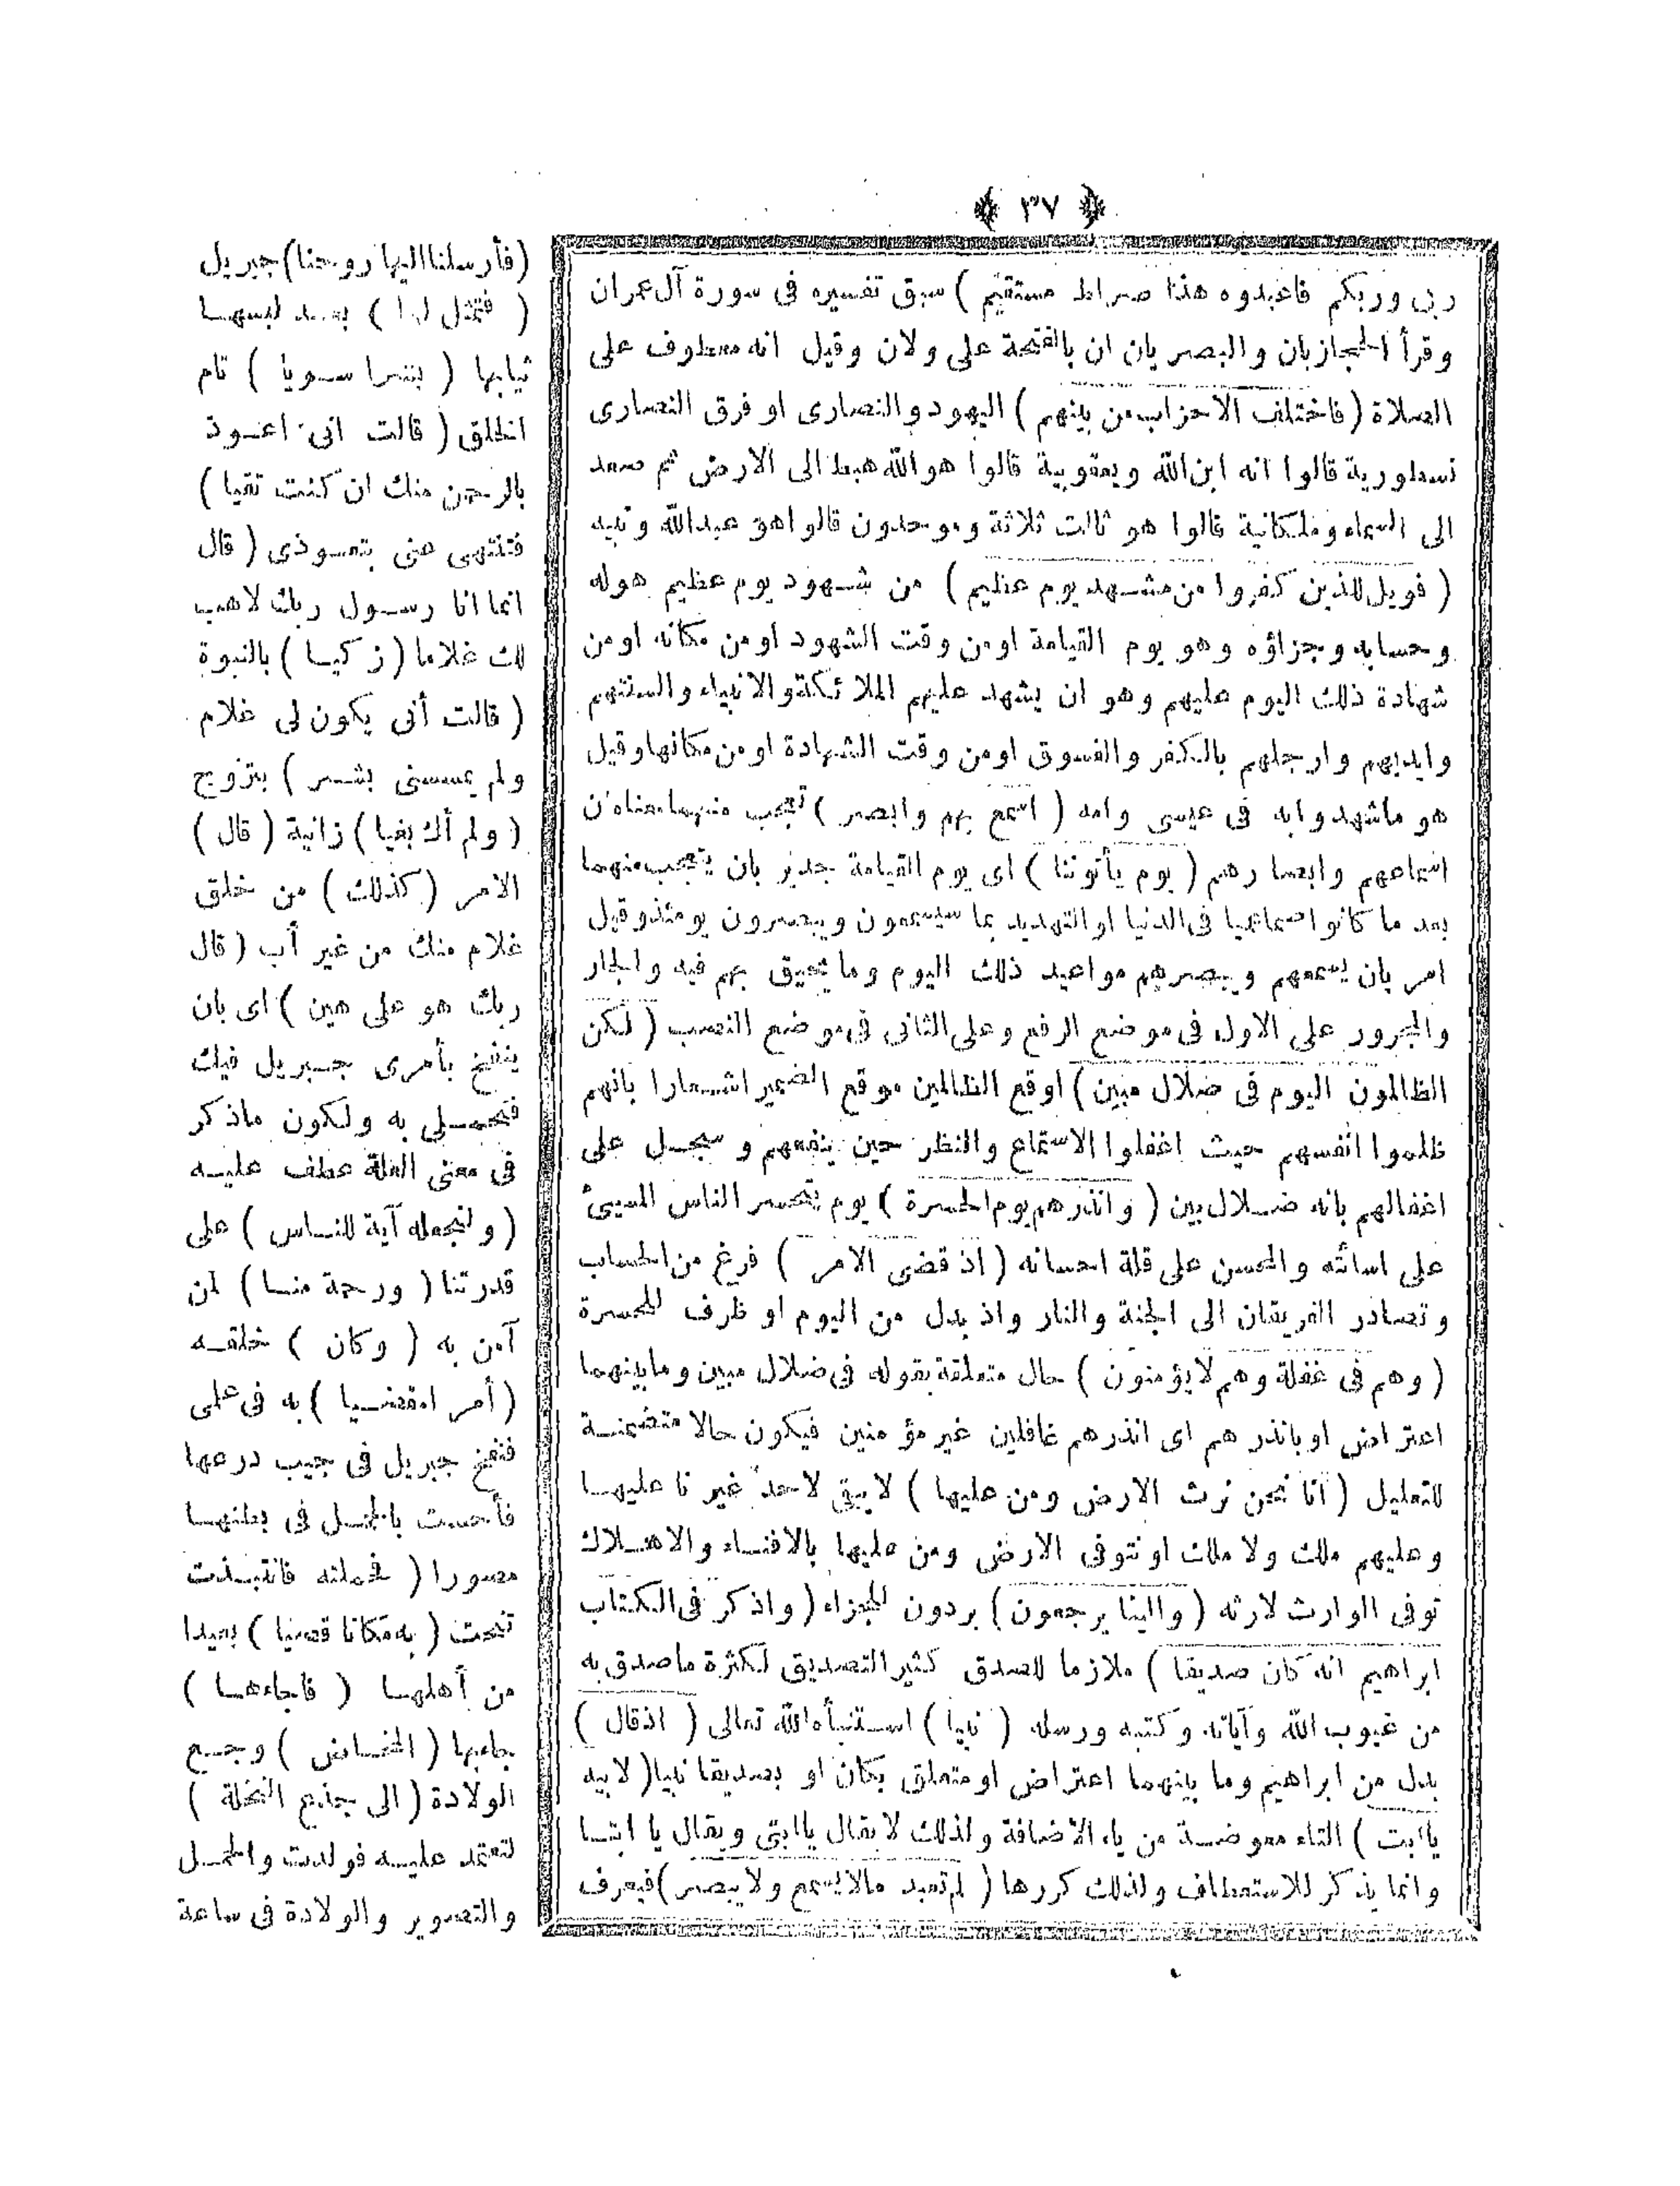 ﴿ ٣٧ ﴾
ربى وربكم فاعبدوه هذا صراط مستقيم ) سبق تفسيره فى سورة آل عمران
وقرأ الحجازيان والبصريان ان بالفتحة على ولان وقيل انه معطوف على
الصلاة ( فاختلف الاحزاب من بينهم ) اليهود والنصارى او فرق النصارى
نسطورية قالوا انه ابن الله ويعقوبية قالوا هو الله هبط الى الارض ثم صعد
الى السماء وملكانية قالوا هو ثالث ثلاثة وموحدون قالوا هو عبدالله ونبيه
( فويل للذين كفروا من مشهد يوم عظيم ) من شهود يوم عظيم هوله
وحسابه وجزاؤه وهو يوم القيامة او من وقت الشهود او من مكانه او من
شهادة ذلك اليوم عليهم وهو ان يشهد عليهم الملائكة والانبياء والسنتهم
وايديهم وارجلهم بالكفر والفسوق او من وقت الشهادة او من مكانها وقيل
هو ماشهدوا به فى عيسى وامه ( اسمع بهم وابصر ) تعجب منهما معناه ان
اسماعهم وابصارهم ( يوم يأتوننا ) اى يوم القيامة جدير بان يتعجب منهما
بعد ما كانوا صما عميا فى الدنيا او التهديد بما سيسمعون ويبصرون يومئذ وقيل
امر بان يسمعهم ويبصرهم مواعيد ذلك اليوم وما يحيق بهم فيه والجار
والمجرور على الاول فى موضع الرفع وعلى الثانى فى موضع النصب ( لكن
الظالمون اليوم فى ضلال مبين ) اوقع الظالمين موقع الضمير اشعارا بانهم
ظلموا انفسهم حيث اغفلوا الاستماع والنظر حين ينفعهم وسجل على
اغفالهم بانه ضلال بين ( وانذرهم يوم الحسرة ) يوم يتحسر الناس المسىء
على اسائته والمحسن على قلة احسانه ( اذ قضى الامر ) فرغ من الحساب
وتصادر الفريقان الى الجنة والنار واذ بدل من اليوم او ظرف للحسرة
( وهم فى غفلة وهم لايؤمنون ) حال متعلقة بقوله فى ضلال مبين وما بينهما
اعتراض او بانذرهم اى انذرهم غافلين غير مؤمنين فيكون حالا متضمنة
للتعليل ( انا نحن نرث الارض ومن عليها ) لا يبقى لاحد غيرنا عليها
وعليهم ملك ولا ملك او نتوفى الارض ومن عليها بالافناء والاهلاك
توفى الوارث لارثه ( والينا يرجعون ) يردون للجزاء ( واذكر فى الكتاب
ابراهيم انه كان صديقا ) ملازما للصدق كثير التصديق لكثرة ماصدق به
من غيوب الله وآياته وكتبه ورسله ( نبيا ) استنبأه الله تعالى ( اذ قال )
بدل من ابراهيم وما بينهما اعتراض او متعلق بكان او بصديقا نبيا ( لابيه
ياابت ) التاء معوضة من ياء الاضافة ولذلك لايقال ياابتى ويقال يا ابتا
وانما يذكر للاستعطاف ولذلك كررها ( لم تعبد مالايسمع ولا يبصر ) فيعرف
(فأرسلنا اليها روحنا) جبريل
( فتمثل لها ) بعد لبسها
ثيابها ( بشرا سويا ) تام
الخلق ( قالت انى اعوذ
بالرحمن منك ان كنت تقيا )
فتنتهى عنى بتعوذى ( قال
انما انا رسول ربك لاهب
لك غلاما ( زكيا ) بالنبوة
( قالت أنى يكون لى غلام
ولم يمسسنى بشر ) بتزوج
( ولم أك بغيا ) زانية ( قال )
الامر ( كذلك ) من خلق
غلام منك من غير أب ( قال
ربك هو على هين ) اى بان
ينفخ بأمرى جبريل فيك
فتحملى به ولكون ماذكر
فى معنى العلة عطف عليه
( ولنجعله آية للناس ) على
قدرتنا ( ورحمة منا ) لمن
آمن به ( وكان ) خلقه
( أمرا مقضيا ) به فى علمى
فنفخ جبريل فى جيب درعها
فأحست بالحمل فى بطنها
مصورا ( فحملته فانتبذت
تنحت ( به مكانا قصيا ) بعيدا
من أهلها ( فاجاءها )
جاء بها ( المخاض ) وجع
الولادة ( الى جذع النخلة )
لتعتمد عليه فولدت والحمل
والتصوير والولادة فى ساعة